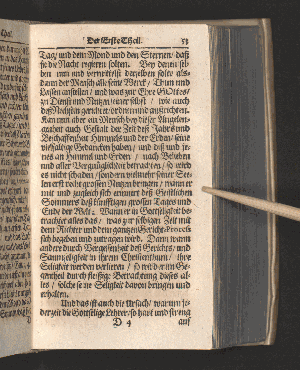 Der Erste Theil. 53
Tag / und dem Mond und den Sternen / daß
sie die Nacht regieren solten. Bey denen sel-
ben nun und vermittelst derselben solte als-
dann der Mensch alle seine Werck / Thun und
Lassen anstellen / und was zur Ehre GOttes /
zu Dienst und Nutzen seiner selbst / wie auch
deß Nechsten gereichet / ordnen und außrichten.
Kan nun aber ein Mensch bey dieser Angelegen-
heit auch Gestalt der Zeit deß Jahrs und
Beschaffenheit Himmels und der Erden seine
vielfältige Gedancken haben / und diß und je-
nes am Himmel und Erden / nach Belieben
und aller Vergnüglichkeit betrachten / so wird
es nicht schaden / sondern vielmehr seiner See-
len erst recht grossen Nutzen bringen / wann er
mit und zugleich sich erinnert deß Geistlichen
Sommers deß künfftigen grossen Tages und
Ende der Welt. Wann er in Gottseligkeit be-
trachtet alles das / was zur selbigen Zeit mit
dem Richter und dem gantzen Gericht-Process
sich begeben und zutragen wird. Dann wann
andere durch Vergessenheit deß Gerichts / und
Saumseligkeit in ihrem Christenthum / ihre
Seligkeit werden verlieren / so wird er im Ge-
gentheil durch fleissige Betrachtung dieses al-
les / solche seine Seligkeit davon bringen und
erhalten.
Und das ist auch die Ursach / warum je-
derzeit die Gottselige Lehrer / so hart und streng
D 4 auf